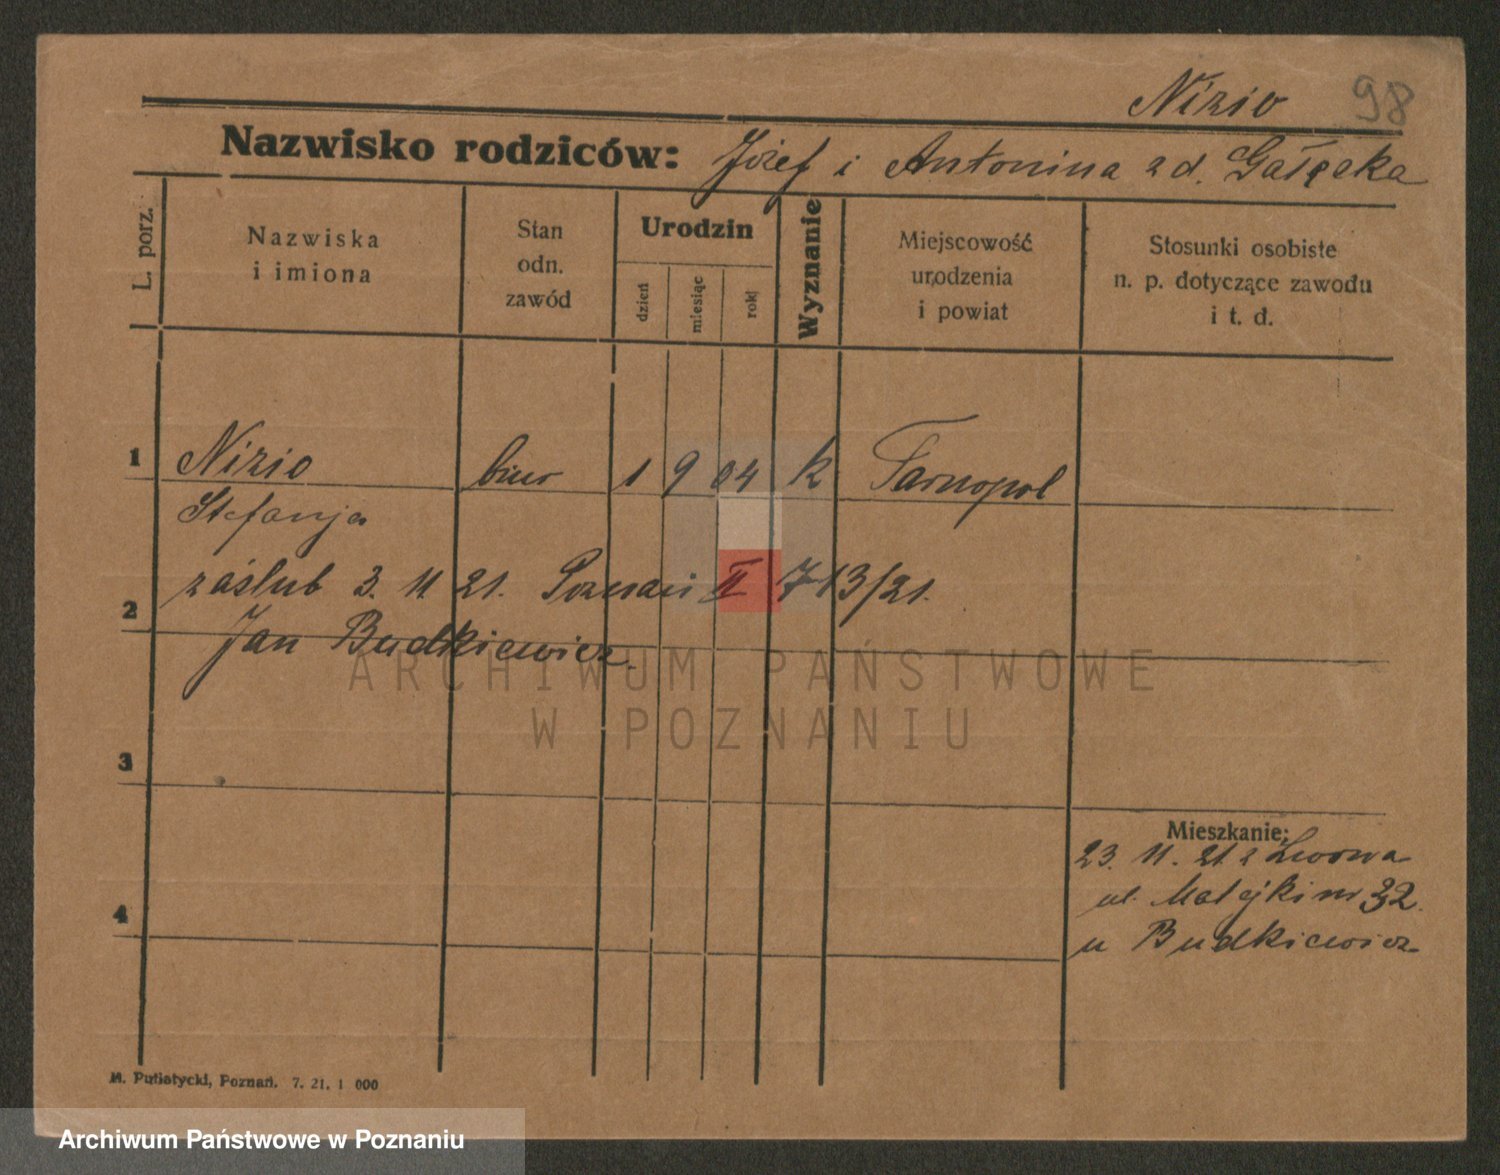 Nizio 98
Nazwisko rodziców: Józef i Antonina z d. Gałęcka
L. porz.
Nazwiska
i imiona
Stan
odn.
zawód
Urodzin
dzień
miesiąc
rok
Wyznanie
Miejscowość
urodzenia
i powiat
Stosunki osobiste
n. p. dotyczące zawodu
i t. d.
1 Nizio biur 1 9 04 k Tarnopol
Stefanja
zaślub 3. 11. 21. Poznań II 713/21.
2
Jan Budkiewicz.
ARCHIWUM PAŃSTWOWE
W POZNANIU
3
Mieszkanie:
23. 11. 21. z Lwowa
4 ul. Matejki nr 32.
u Budkiewicz
M. Putiatycki, Poznań. 7. 21. 1 000
Archiwum Państwowe w Poznaniu